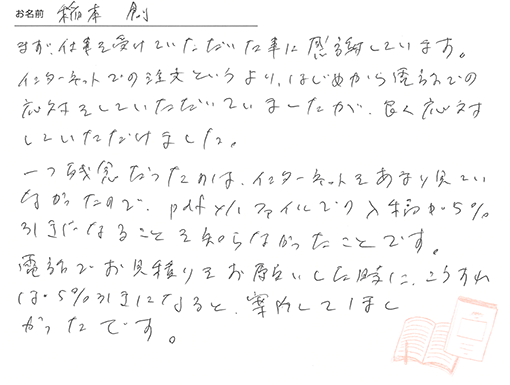 お名前 稲本 創
まず、仕事を受けていただいた事に感謝しています。
インターネットでの注文というより、はじめから電話での
応対をしていただいていましたが、良く応対
していただけました。
一つ残念だったのは、インターネットをあまり見てい
なかったので、pdf ファイルで入稿が5%
引きになることを知らなかったことです。
電話でお見積りをお願いした時に、こうすれ
ば5%引きになると、案内してほし
かったです。